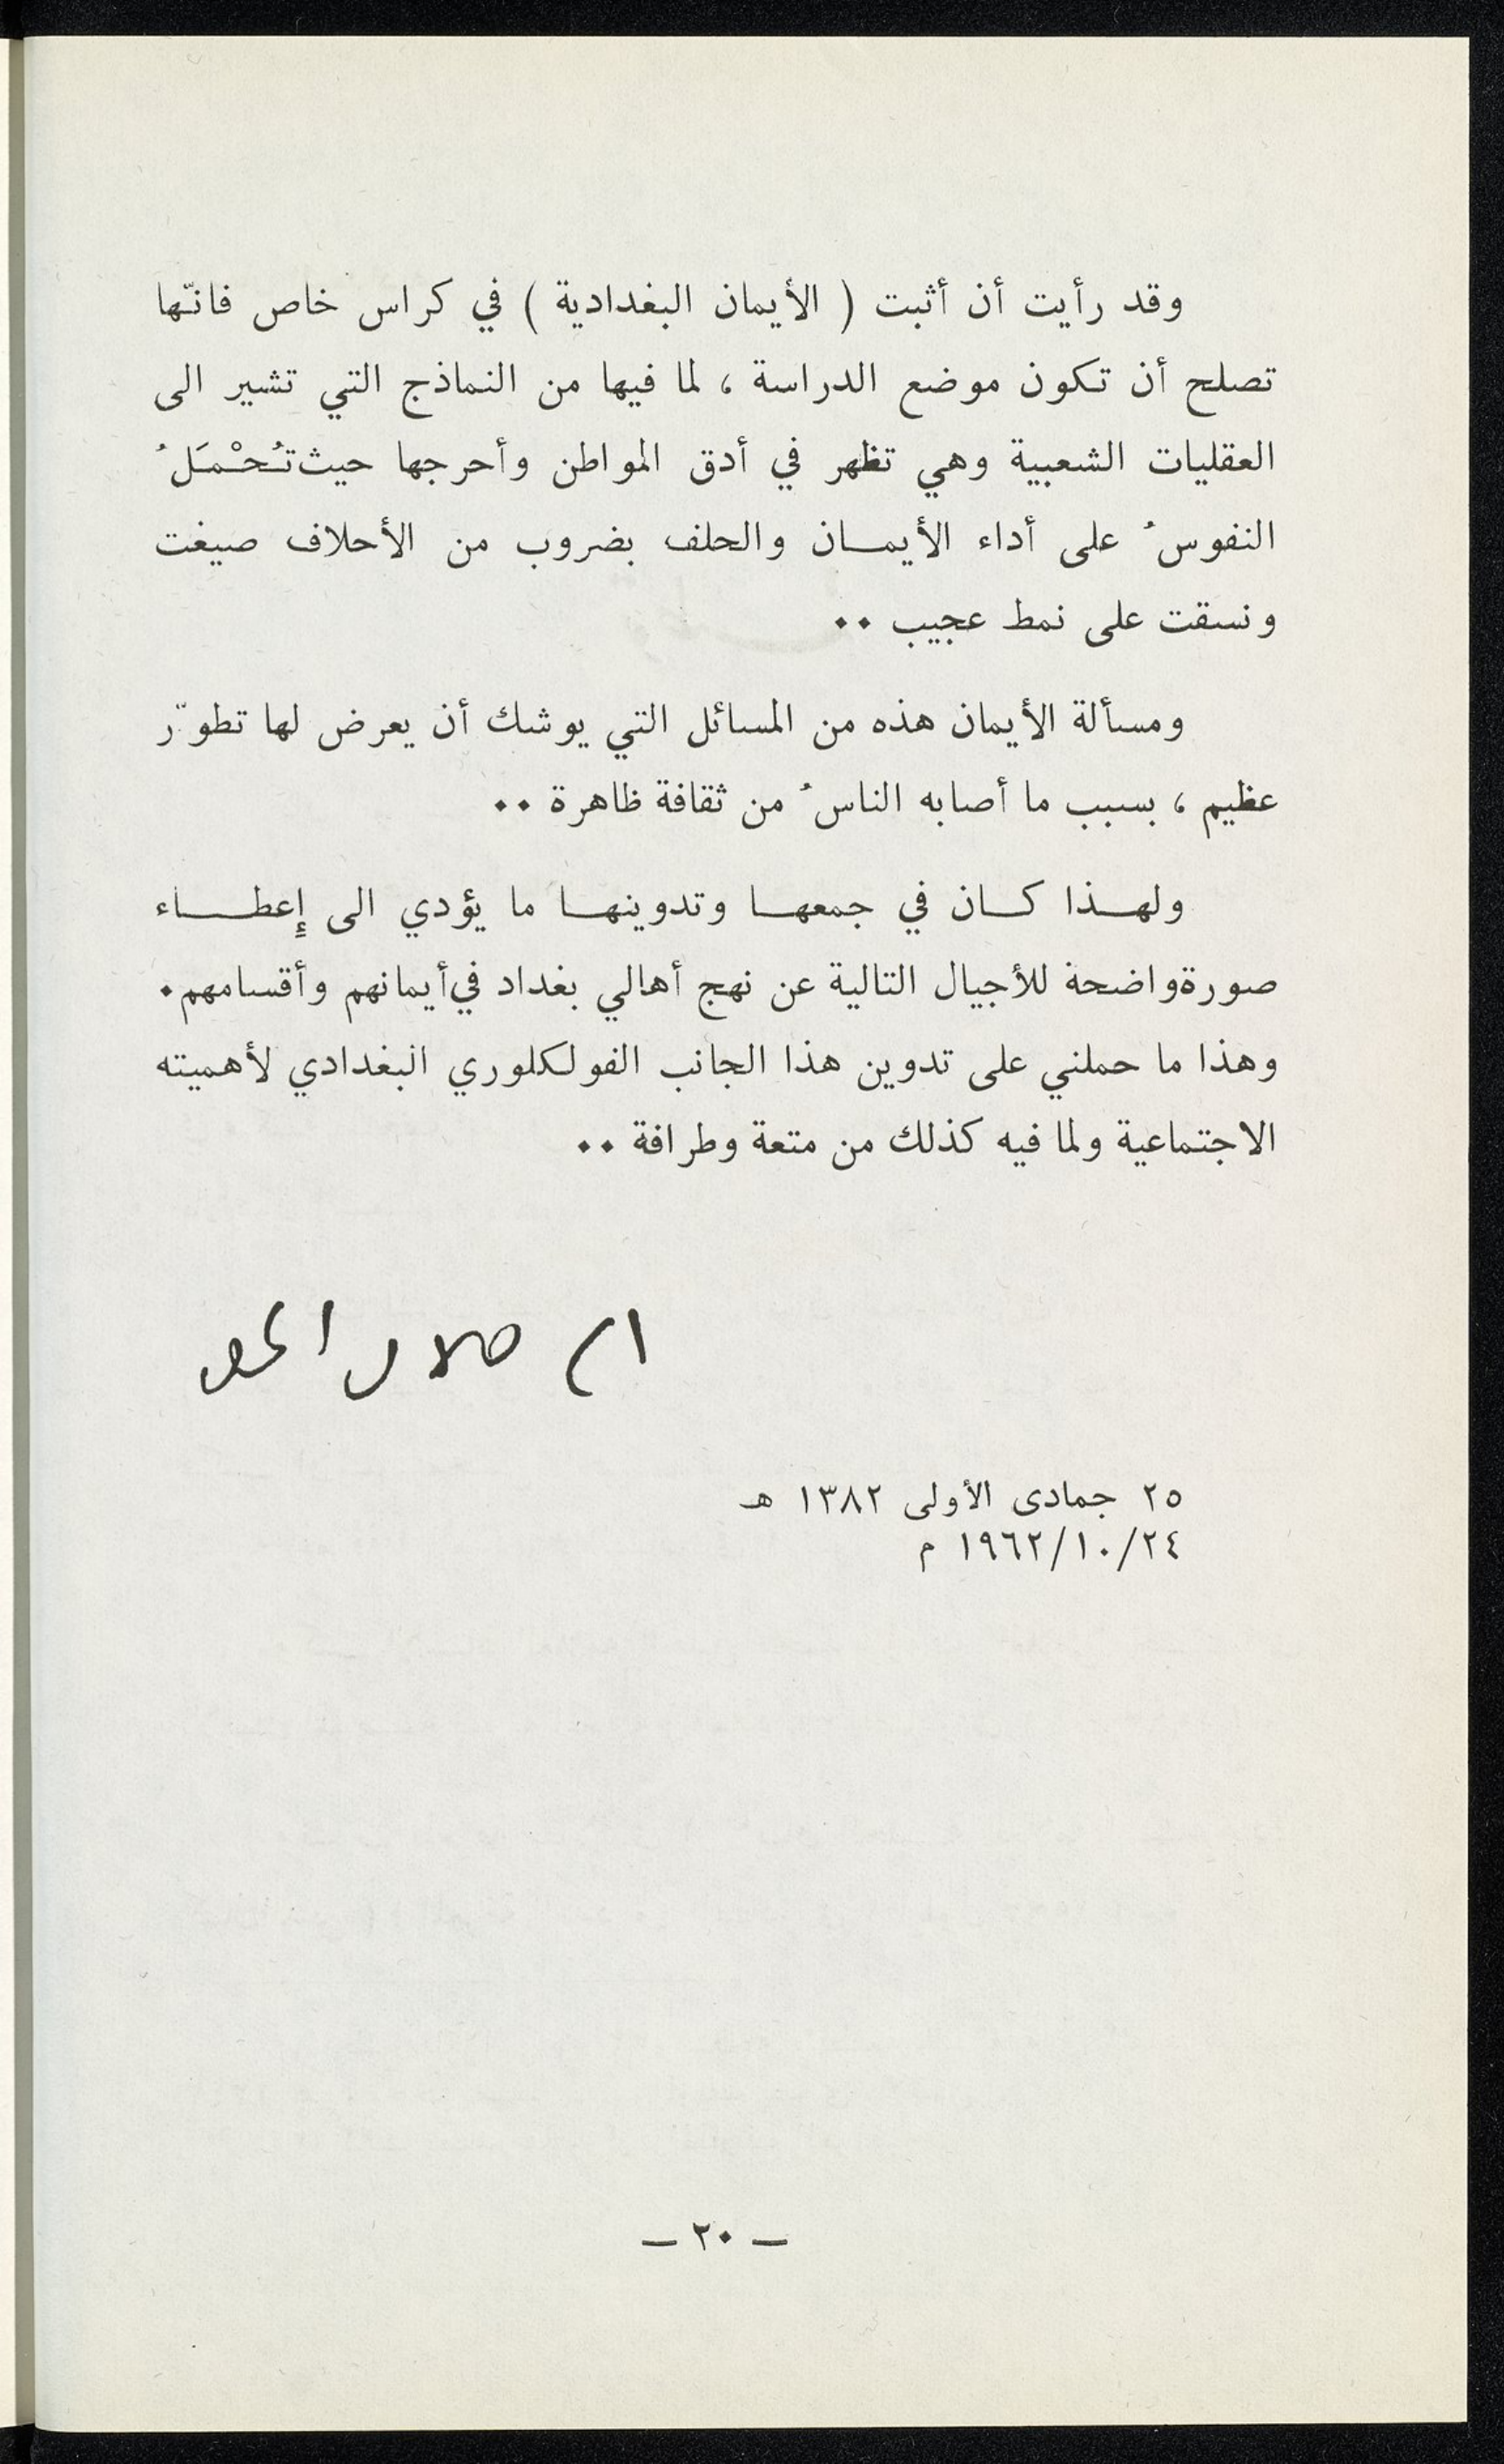 وقد رأيت أن أثبت ( الأيمان البغدادية ) في كراس خاص فانّها
تصلح أن تكون موضع الدراسة ، لما فيها من النماذج التي تشير الى
العقليات الشعبية وهي تظهر في أدق المواطن وأحرجها حيث تُحْمَلُ
النفوسُ على أداء الأيمــان والحلف بضروب من الأحلاف صيغت
ونسقت على نمط عجيب ٠٠
ومسألة الأيمان هذه من المسائل التي يوشك أن يعرض لها تطوّر
عظيم ، بسبب ما أصابه الناسُ من ثقافة ظاهرة ٠٠
ولهــذا كــان في جمعهــا وتدوينهــا ما يؤدي الى إعطــاء
صورة واضحة للأجيال التالية عن نهج أهالي بغداد في أيمانهم وأقسامهم ٠
وهذا ما حملني على تدوين هذا الجانب الفولكلوري البغدادي لأهميته
الاجتماعية ولما فيه كذلك من متعة وطرافة ٠٠
٢٥ جمادى الأولى ١٣٨٢ هـ
٢٤/١٠/١٩٦٢ م
— ٢٠ —